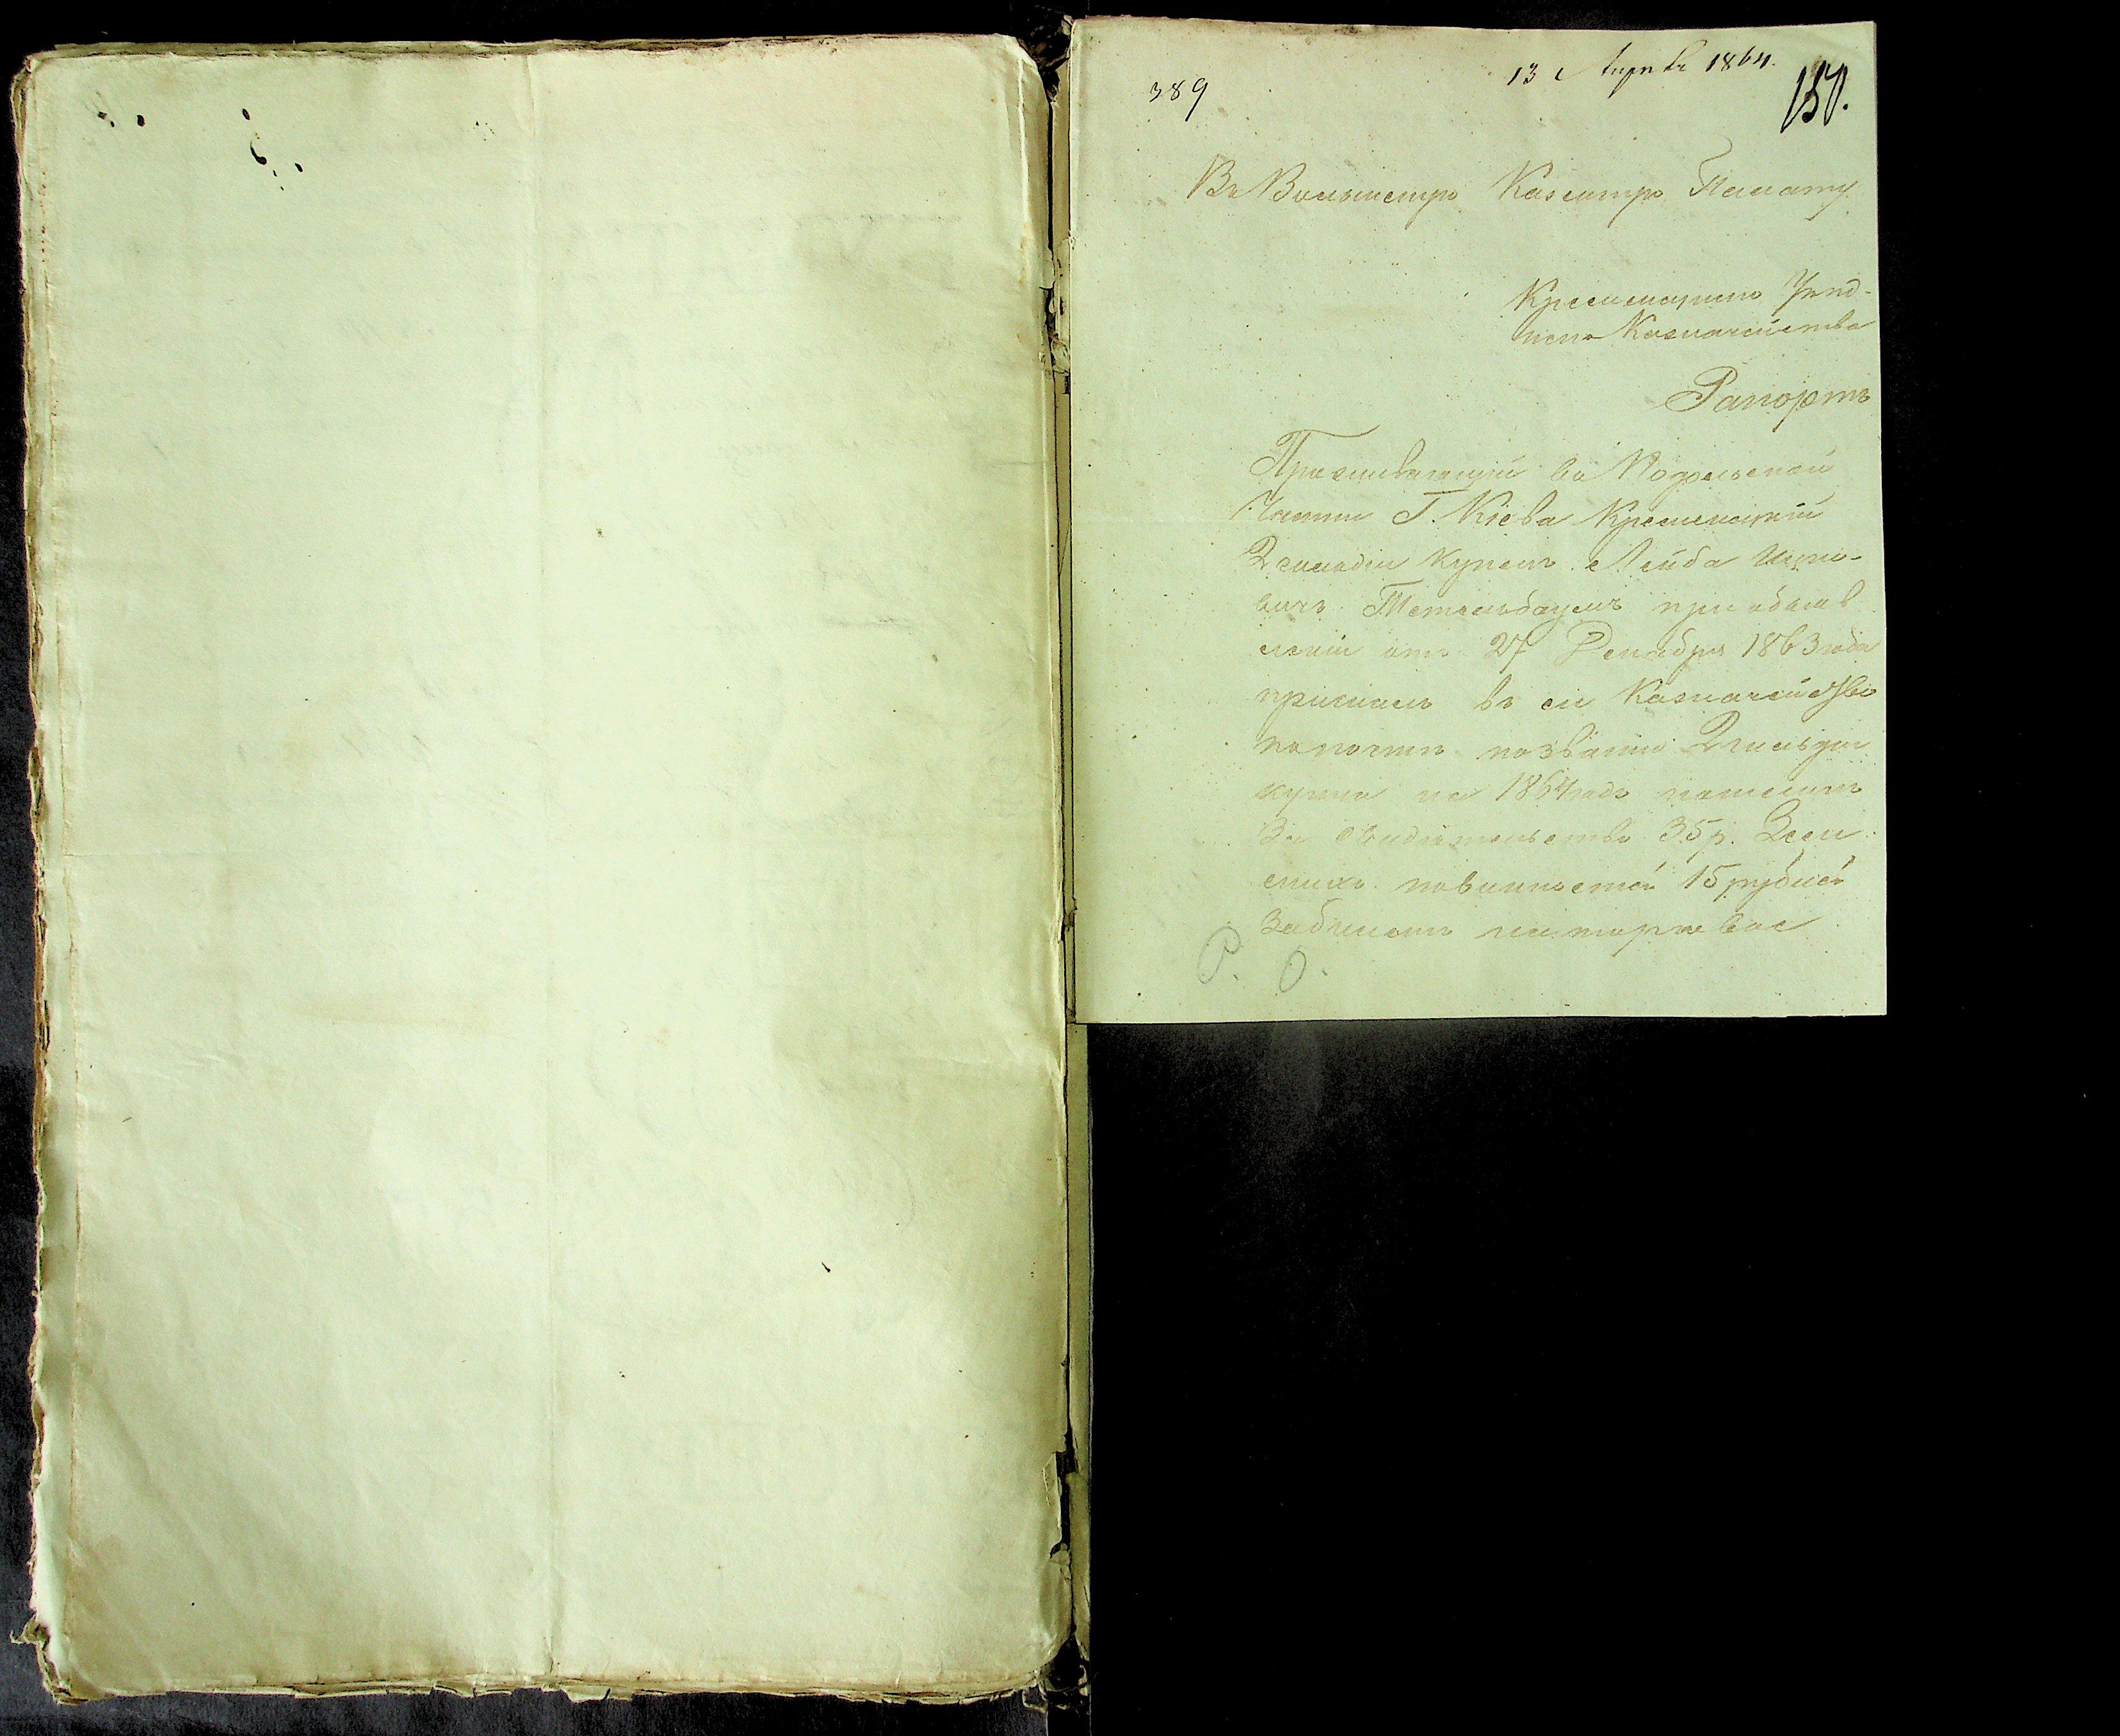 389
13 Апрѣля 1864.
157.
Въ Волынскую Казенную Палату
Кременецкаго Уѣзд-
наго Казначейства
Рапортъ
Проживающій въ Подольской
Части Г. Кіева Кременецкій
2 гильдіи купецъ Лейба Ицко-
вичъ Тетельбаумъ при объяв
леніи отъ 27 Декабря 1863 года
прислалъ въ сіе Казначейство
по почтѣ по званію 2 гильдіи
купца на 1864 годъ пошлинъ
За свидѣтельство 35 р. Зем
скихъ повинностей 15 рублей
За билетъ на торговое
Р. О.